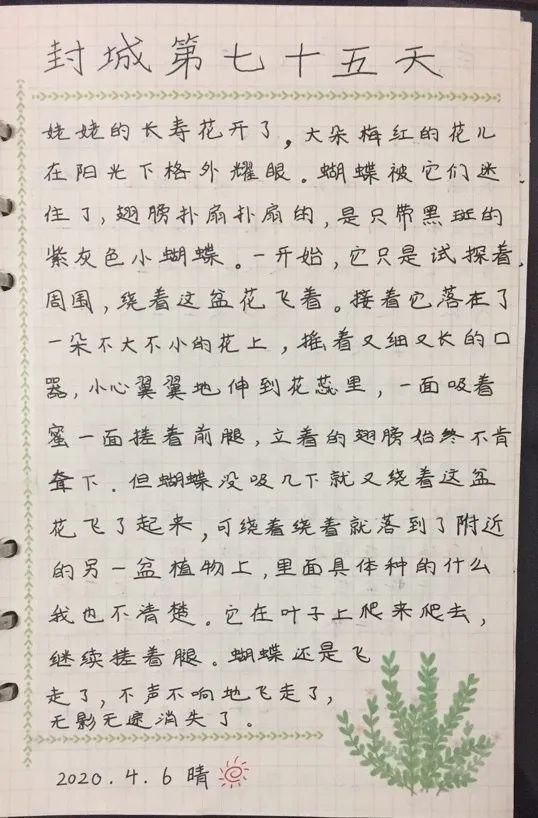 封城第七十五天
姥姥的长寿花开了，大朵梅红的花儿
在阳光下格外耀眼。蝴蝶被它们迷
住了，翅膀扑扇扑扇的，是只带黑斑的
紫灰色小蝴蝶。一开始，它只是试探着
周围，绕着这盆花飞着。接着它落在了
一朵不大不小的花上，摇着又细又长的口
器，小心翼翼地伸到花蕊里，一面吸着
蜜一面搓着前腿，立着的翅膀始终不肯
耷下。但蝴蝶没吸几下就又绕着这盆
花飞了起来，可绕着绕着就落到了附近
的另一盆植物上，里面具体种的什么
我也不清楚。它在叶子上爬来爬去，
继续搓着腿。蝴蝶还是飞
走了，不声不响地飞走了，
无影无迹消失了。
2020.4.6 晴